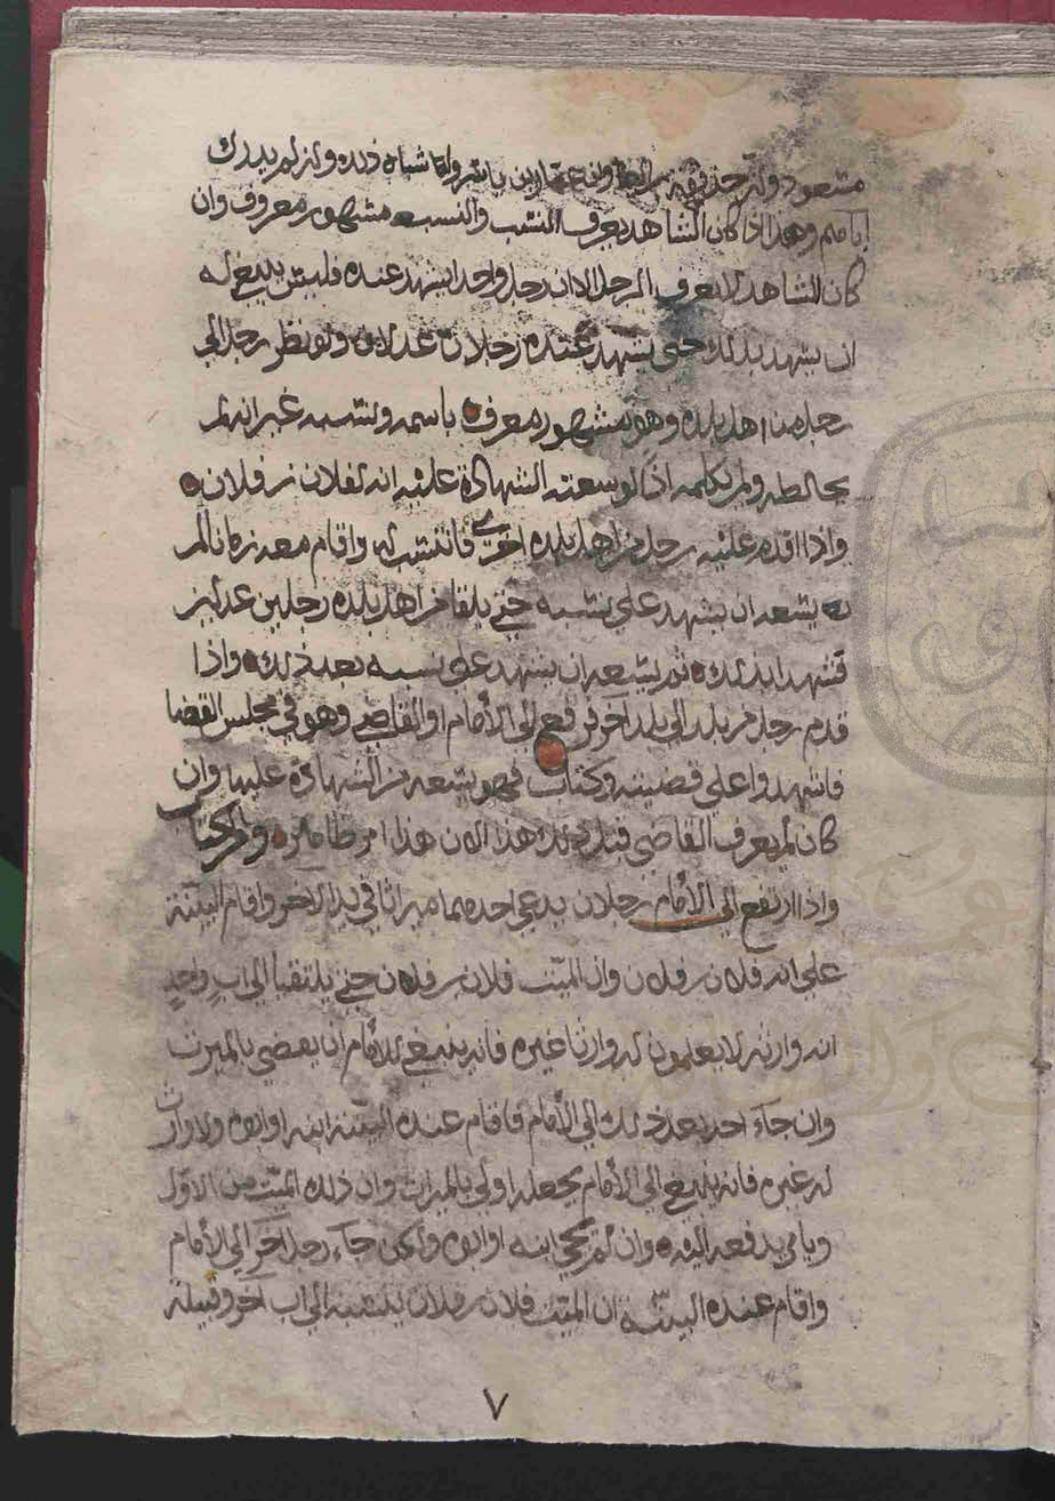 مسعود وابن حذيفة بن اليمان وابن عمار بن ياسر ولنا شباه ذلك وان لم يدرك
اباهم وهذا اذا كان الشاهد يعرف النسب والنسبه مشهور معروف وان
كان الشاهد لا يعرف الرجل الا ان رجل واحد ايشهد عنده فليس ينبغي له
ان يشهد بذلك حتى يشهد عنده رجلان عدلان ولو نظر رجل الى
رجل من اهل بلده وهو مشهور معرف باسمه ونسبه غير انه لم
يخالطه ولم يكلمه اذا لوسعته الشهادة عليه انه لفلان بن فلان
واذا اقدم عليه رجل من اهل بلده اخرى فانتسب له واقام معه زمانا لم
يسعه ان يشهد على نسبه حتى يلقا من اهل بلده رجلين عدلين
فشهد ا بذلك ثم يسعه ان يشهد على نسبه بعد ذلك واذا
قدم رجل من بلد الى بلد اخر فرفع الى الأمام او القاضي وهو في مجلس القضا
فاشهدوا على قضيته وكتاب فهو يسعه من الشهادة عليها وان
كان لم يعرف القاضي قبل ذلك هذا الان هذا امر ظاهر
واذا ارتفع الى الأمام رجلان يدعي احدهما ميراثا في يد الاخر واقام البينة
على انه فلان بن فلان وان الميت فلان بن فلان حتى يلتقيا الى اب واحد
انه وارثه لا يعلمون له وارثا غيره فانه ينبغي للأمام ان يقضي بالميرث
وان جاء احد بعد ذلك الى الأمام فاقام عنده البينة انه ابنه او ابوه ولا وارث
له غيره فانه ينبغي الى الأمام يجعله اولى بالميراث وان ذلك الميت من الاول
ويامر بدفعه اليه وان لم يجي ابنه او ابوه ولكن جاء رجل آخر الى الأمام
واقام عنده البينة ان الميت فلان بن فلان ينسبه الى اب آخر وقبيلة
٧